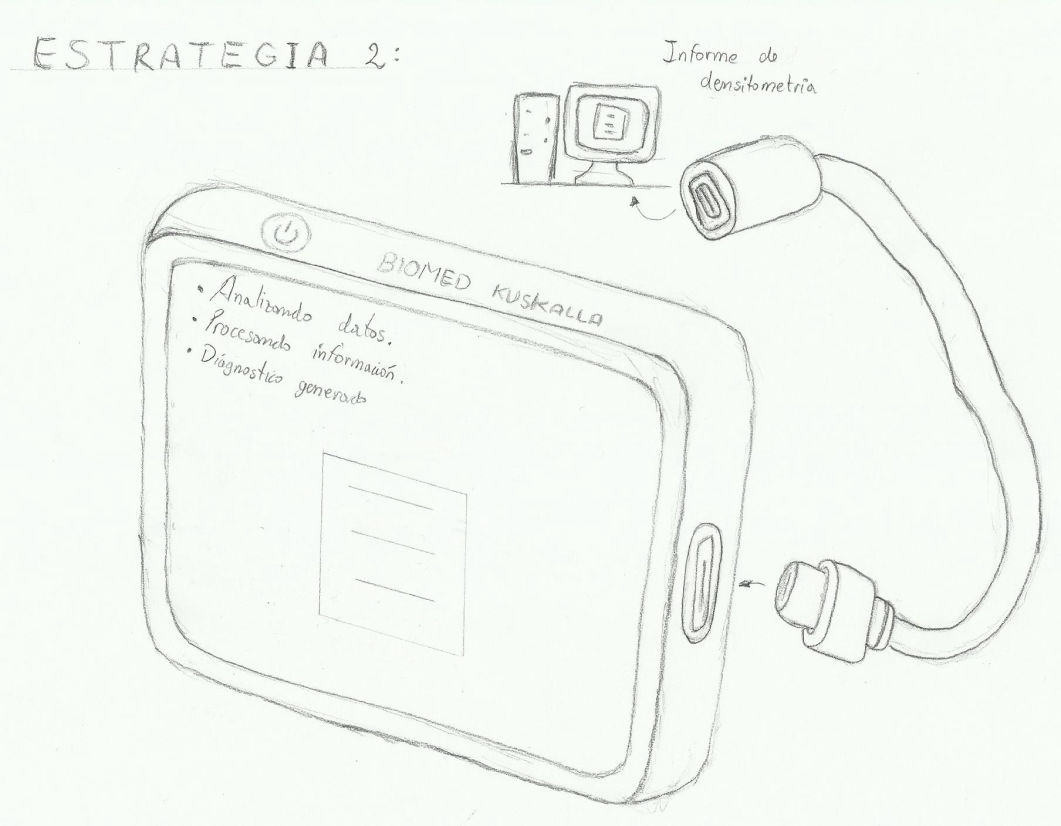 ESTRATEGIA 2:
Informe de
densitometria
BIOMED KUSKALLA
• Analizando datos.
• Procesando información.
• Diagnostico generado